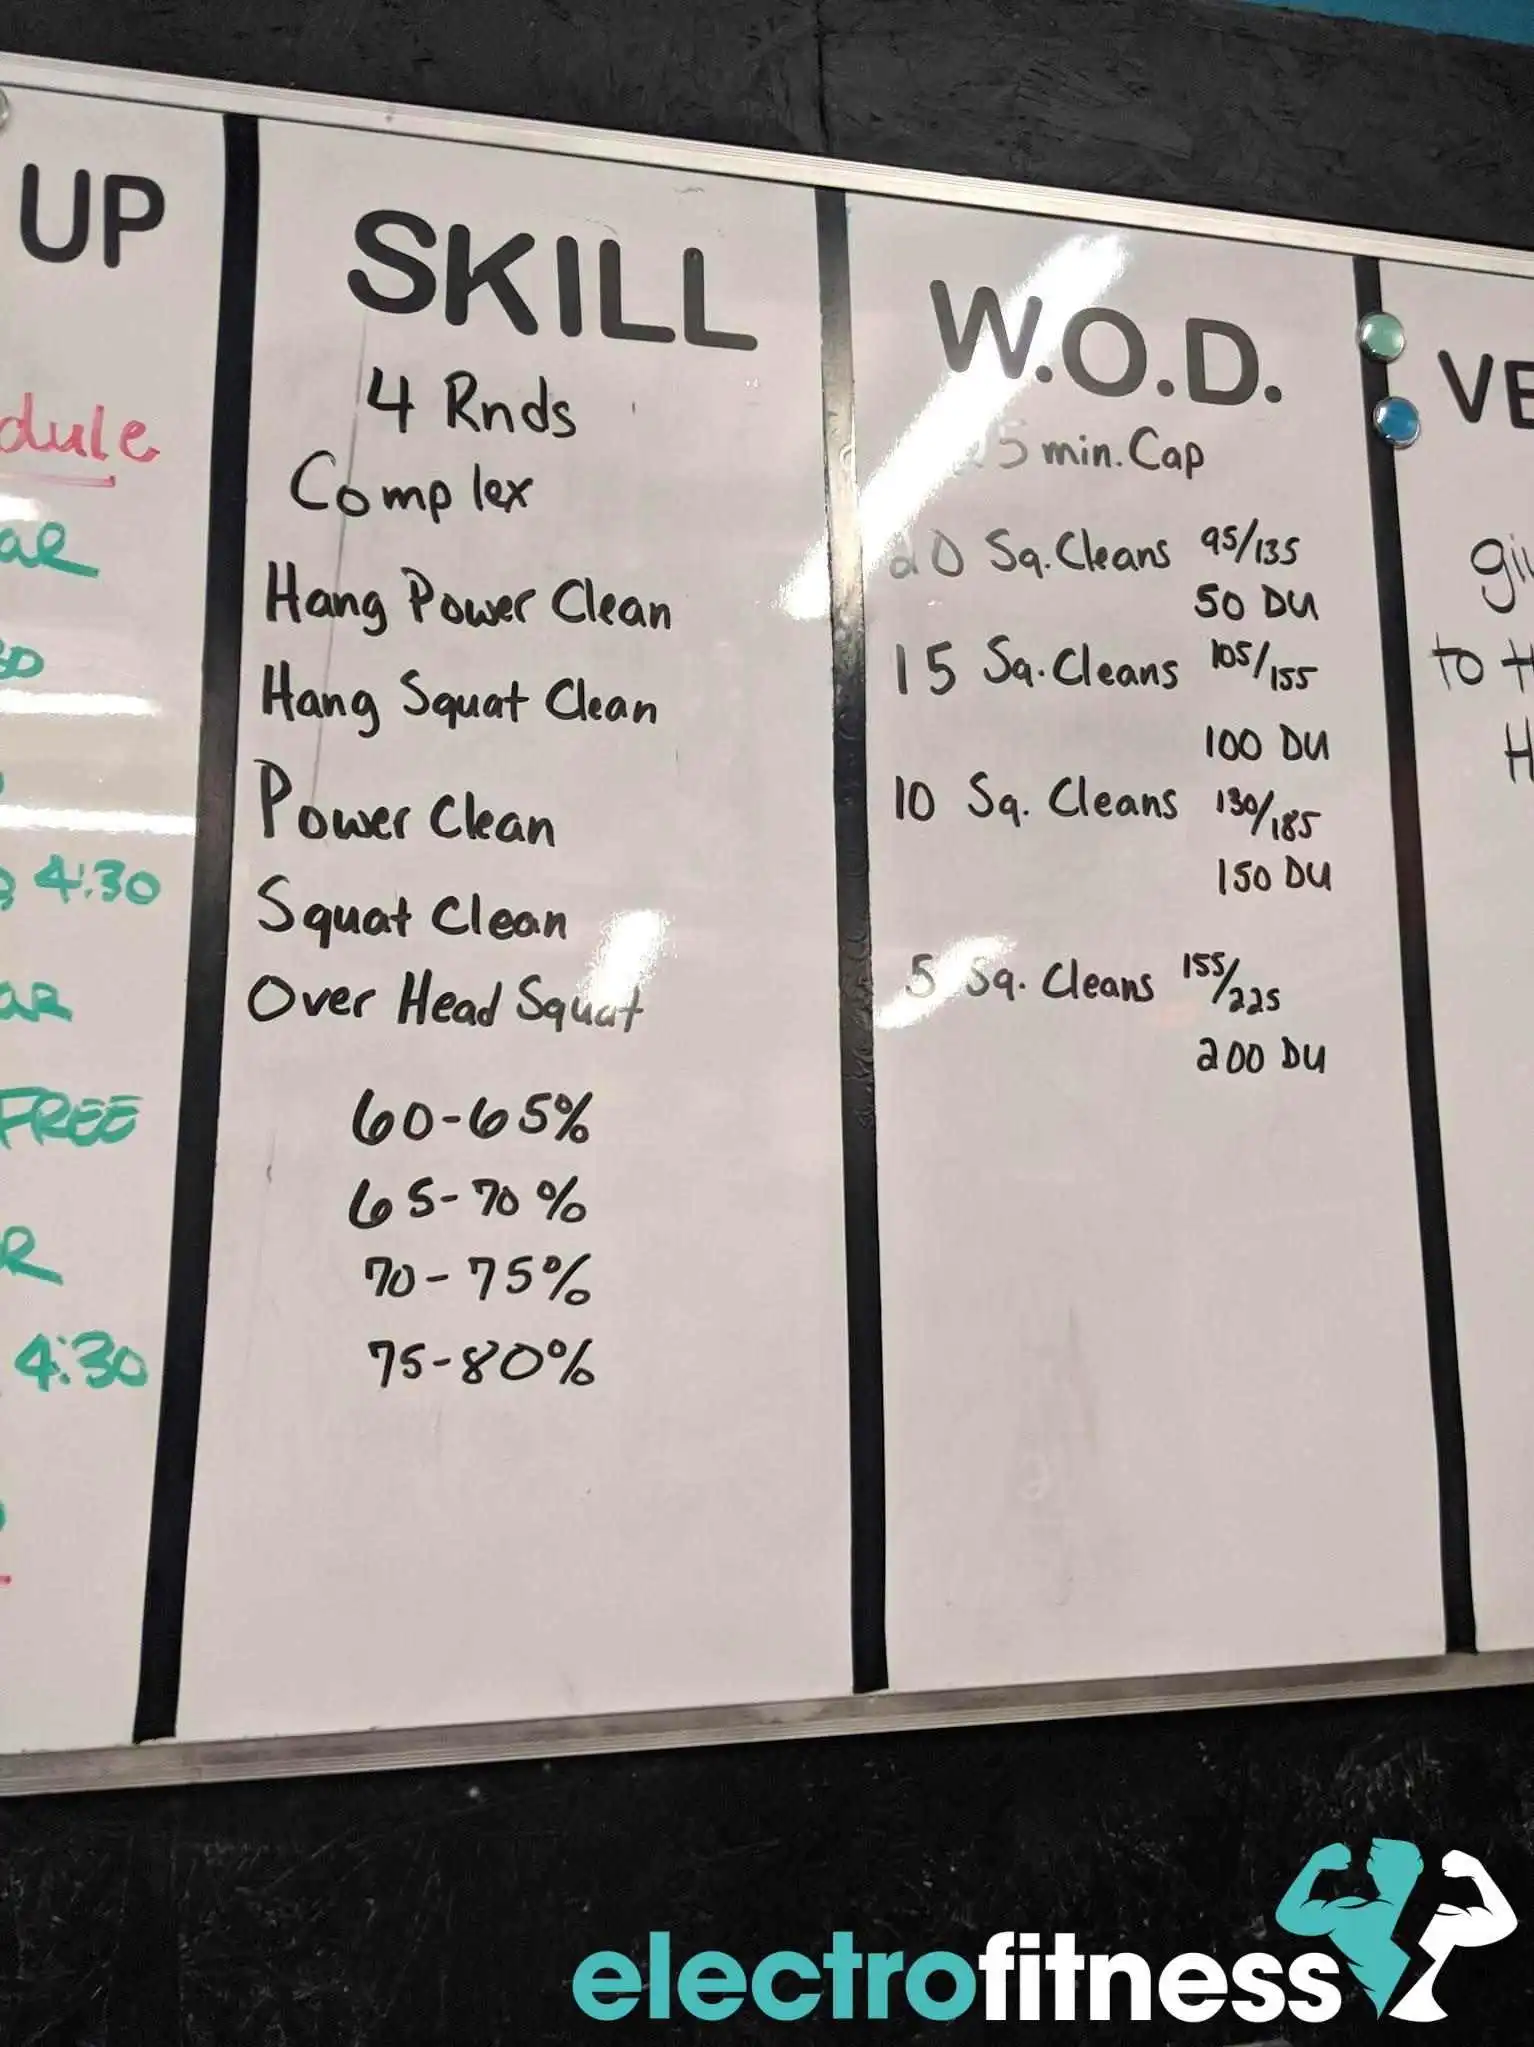 UP
dule
aR
30
4:30
aR
FREE
R
4:30
SKILL
4 Rnds
Complex
Hang Power Clean
Hang Squat Clean
Power Clean
Squat Clean
Over Head Squat
60-65%
65-70%
70-75%
75-80%
W.O.D.
min. Cap
20 Sq. Cleans 95/135
50 DU
15 Sq. Cleans 105/155
100 DU
10 Sq. Cleans 130/185
150 DU
5 Sq. Cleans 155/225
200 DU
VE
giv
to
H
electrofitness